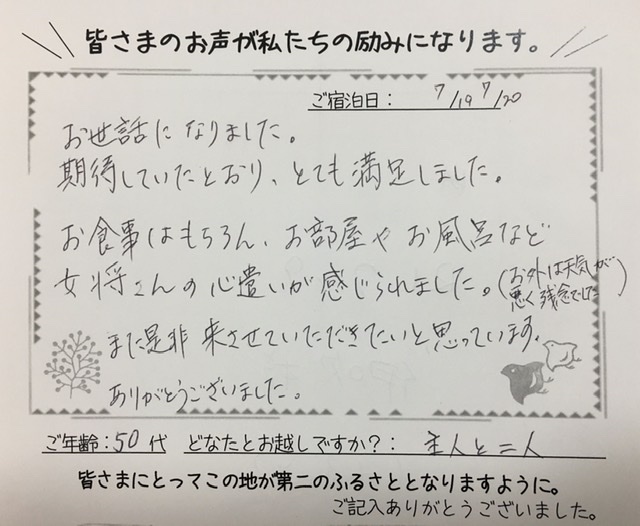 皆さまのお声が私たちの励みになります。
ご宿泊日: 7/19 7/20
お世話になりました。
期待していたとおり、とても満足しました。
お食事はもちろん、お部屋やお風呂など
女将さんの心遣いが感じられました。(お外は天気が
悪く残念でした)
また是非来させていただきたいと思っています。
ありがとうございました。
ご年齢:50代 どなたとお越しですか?: 主人と二人
皆さまにとってこの地が第二のふるさととなりますように。
ご記入ありがとうございました。